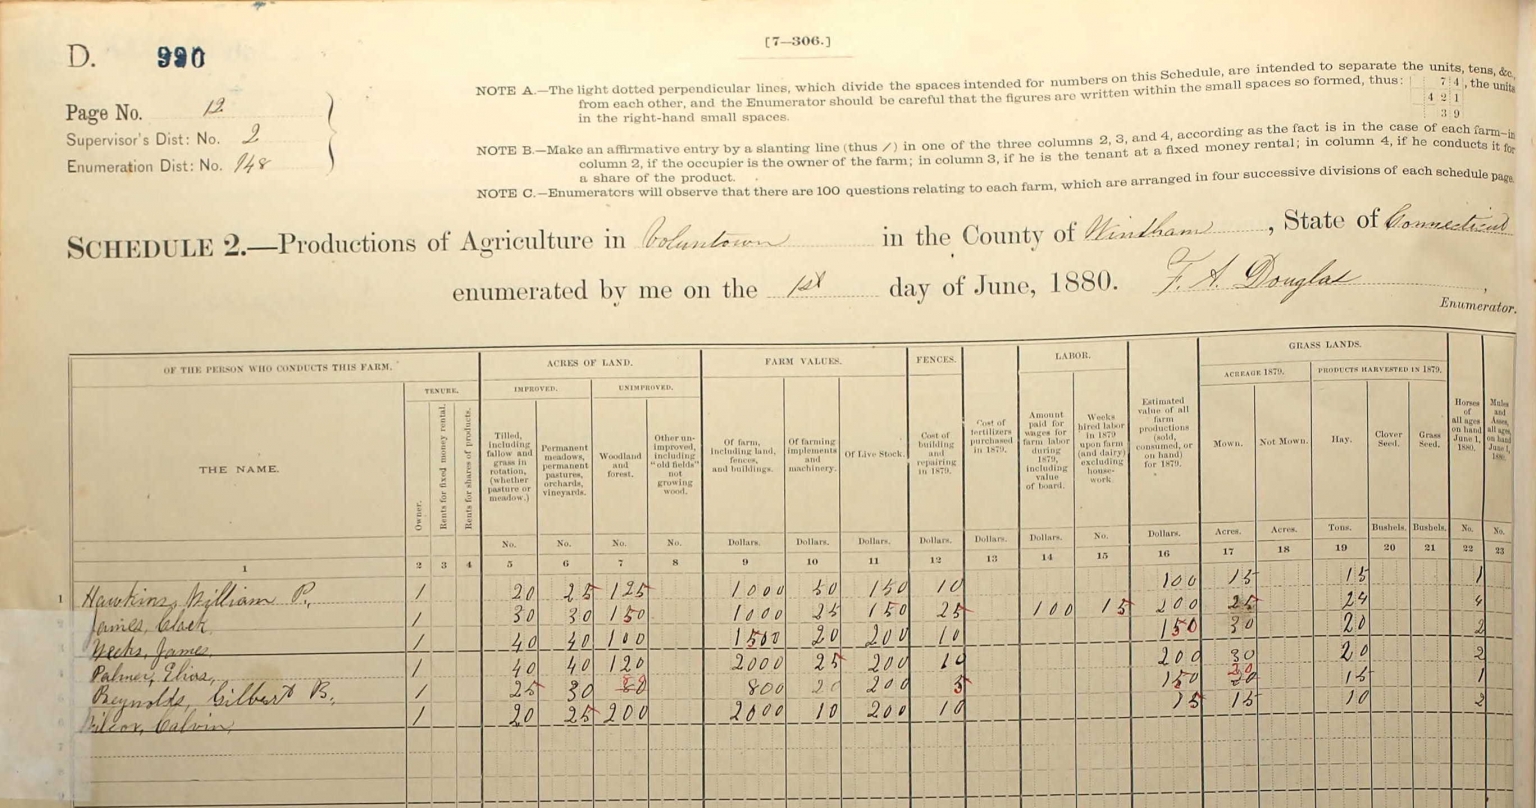 D. 990
[7—306.]
Page No. 12
Supervisor's Dist: No. 2
Enumeration Dist: No. 148
NOTE A.—The light dotted perpendicular lines, which divide the spaces intended for numbers on this Schedule, are intended to separate the units, tens, &c.,
from each other, and the Enumerator should be careful that the figures are written within the small spaces so formed, thus: 74, the units
421
in the right-hand small spaces. 39
NOTE B.—Make an affirmative entry by a slanting line (thus /) in one of the three columns 2, 3, and 4, according as the fact is in the case of each farm—in
column 2, if the occupier is the owner of the farm; in column 3, if he is the tenant at a fixed money rental; in column 4, if he conducts it for
a share of the product.
NOTE C.—Enumerators will observe that there are 100 questions relating to each farm, which are arranged in four successive divisions of each schedule page.
SCHEDULE 2.—Productions of Agriculture in Voluntown in the County of Windham, State of Connecticut
enumerated by me on the 1st day of June, 1880. F. A. Douglas,
Enumerator.
OF THE PERSON WHO CONDUCTS THIS FARM. ACRES OF LAND. FARM VALUES. FENCES. LABOR. GRASS LANDS.
TENURE. IMPROVED. UNIMPROVED. ACREAGE 1879. PRODUCTS HARVESTED IN 1879.
THE NAME.
Owner.
Rents for fixed money rental.
Rents for shares of products.
Tilled, including fallow and grass in rotation, (whether pasture or meadow.)
Permanent meadows, permanent pastures, orchards, vineyards.
Woodland and forest.
Other unimproved, including "old fields" not growing wood.
Of farm, including land, fences, and buildings.
Of farming implements and machinery.
Of Live Stock.
Cost of building and repairing in 1879.
Cost of fertilizers purchased in 1879.
Amount paid for wages for farm labor during 1879, including value of board.
Weeks hired labor in 1879 upon farm (and dairy) excluding house-work.
Estimated value of all farm productions (sold, consumed, or on hand) for 1879.
Mown.
Not Mown.
Hay.
Clover Seed.
Grass Seed.
Horses of all ages on hand June 1, 1880.
Mules and Asses, all ages, on hand June 1, 1880.
No. No. No. No. Dollars. Dollars. Dollars. Dollars. Dollars. Dollars. No. Dollars. Acres. Acres. Tons. Bushels. Bushels. No. No.
1 2 3 4 5 6 7 8 9 10 11 12 13 14 15 16 17 18 19 20 21 22 23
1 Hawkins, William P. / 20 25 125 1000 50 150 10 100 15 15 1
James, Clark / 30 30 150 1000 25 150 25 100 15 200 25 24 4
Weeks, James / 40 40 100 1500 20 200 10 150 30 20 2
Palmer, Elias, / 40 40 120 2000 25 200 10 200 30 20 2
Reynolds, Gilbert B. / 25 30 800 20 200 5 150 20 15 1
Wilcox, Calvin / 20 25 200 2000 10 200 10 75 15 10 2